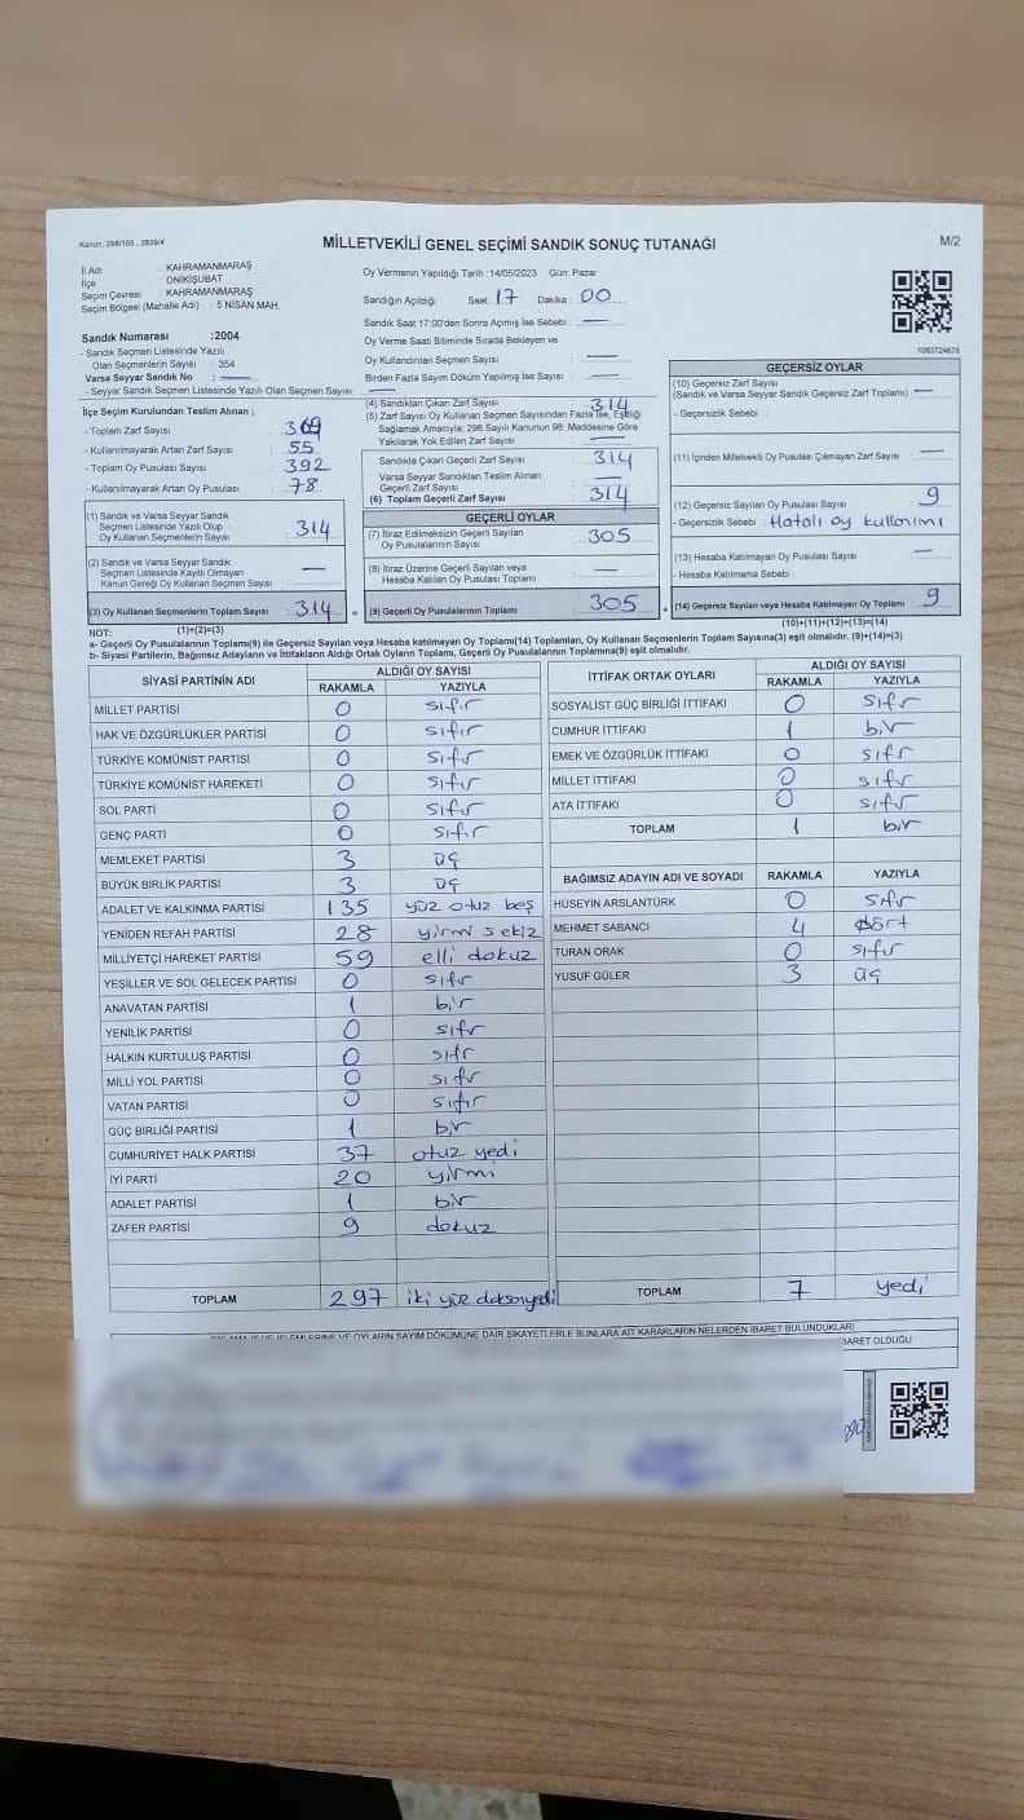 MİLLETVEKİLİ GENEL SEÇİMİ SANDIK SONUÇ TUTANAĞI
M/2
İl Adı KAHRAMANMARAŞ
İlçe ONİKİŞUBAT
Seçim Çevresi KAHRAMANMARAŞ
Seçim Bölgesi (Mahalle Adı) : 5 NİSAN MAH.
Sandık Numarası :2004
- Sandık Seçmen Listesinde Yazılı
Olan Seçmenlerin Sayısı : 354
Varsa Seyyar Sandık No : —
- Seyyar Sandık Seçmen Listesinde Yazılı Olan Seçmen Sayısı : —
Oy Vermenin Yapıldığı Tarih :14/05/2023 Gün: Pazar
Sandığın Açıldığı Saat: 17 Dakika: 00
Sandık Saat 17:00'den Sonra Açılmış İse Sebebi : —
Oy Verme Saati Bitiminde Sırada Bekleyen ve
Oy Kullandırılan Seçmen Sayısı : —
Birden Fazla Sayım Döküm Yapılmış İse Sayısı : —
İlçe Seçim Kurulundan Teslim Alınan :
- Toplam Zarf Sayısı : 369
- Kullanılmayarak Artan Zarf Sayısı : 55
- Toplam Oy Pusulası Sayısı : 392
- Kullanılmayarak Artan Oy Pusulası : 78
(1) Sandık ve Varsa Seyyar Sandık
Seçmen Listesinde Yazılı Olup
Oy Kullanan Seçmenlerin Sayısı 314
(2) Sandık ve Varsa Seyyar Sandık
Seçmen Listesinde Kayıtlı Olmayan
Kanun Gereği Oy Kullanan Seçmen Sayısı —
(3) Oy Kullanan Seçmenlerin Toplam Sayısı 314
(4) Sandıktan Çıkan Zarf Sayısı 314
(5) Zarf Sayısı Oy Kullanan Seçmen Sayısından Fazla İse, Eşitliği
Sağlamak Amacıyla; 298 Sayılı Kanunun 98. Maddesine Göre
Yakılarak Yok Edilen Zarf Sayısı —
Sandıkta Çıkan Geçerli Zarf Sayısı 314
Varsa Seyyar Sandıktan Teslim Alınan
Geçerli Zarf Sayısı —
(6) Toplam Geçerli Zarf Sayısı 314
GEÇERLİ OYLAR
(7) İtiraz Edilmeksizin Geçerli Sayılan
Oy Pusulalarının Sayısı 305
(8) İtiraz Üzerine Geçerli Sayılan veya
Hesaba Katılan Oy Pusulası Toplamı —
(9) Geçerli Oy Pusulalarının Toplamı 305
GEÇERSİZ OYLAR
(10) Geçersiz Zarf Sayısı
(Sandık ve Varsa Seyyar Sandık Geçersiz Zarf Toplamı) —
- Geçersizlik Sebebi :
(11) İçinden Milletvekili Oy Pusulası Çıkmayan Zarf Sayısı —
(12) Geçersiz Sayılan Oy Pusulası Sayısı 9
- Geçersizlik Sebebi : Hatalı oy kullanımı
(13) Hesaba Katılmayan Oy Pusulası Sayısı —
- Hesaba Katılmama Sebebi :
(14) Geçersiz Sayılan veya Hesaba Katılmayan Oy Toplamı 9
NOT: (1)+(2)=(3)
(10)+(11)+(12)+(13)=(14)
a- Geçerli Oy Pusulalarının Toplamı(9) ile Geçersiz Sayılan veya Hesaba katılmayan Oy Toplamı(14) Toplamları, Oy Kullanan Seçmenlerin Toplam Sayısına(3) eşit olmalıdır. (9)+(14)=(3)
b- Siyasi Partilerin, Bağımsız Adayların ve İttifakların Aldığı Ortak Oyların Toplamı, Geçerli Oy Pusulalarının Toplamına(9) eşit olmalıdır.
SİYASİ PARTİNİN ADI ALDIĞI OY SAYISI
RAKAMLA YAZIYLA
MİLLET PARTİSİ 0 sıfır
HAK VE ÖZGÜRLÜKLER PARTİSİ 0 sıfır
TÜRKİYE KOMÜNİST PARTİSİ 0 sıfır
TÜRKİYE KOMÜNİST HAREKETİ 0 sıfır
SOL PARTİ 0 sıfır
GENÇ PARTİ 0 sıfır
MEMLEKET PARTİSİ 3 üç
BÜYÜK BİRLİK PARTİSİ 3 üç
ADALET VE KALKINMA PARTİSİ 135 yüz otuz beş
YENİDEN REFAH PARTİSİ 28 yirmi sekiz
MİLLİYETÇİ HAREKET PARTİSİ 59 elli dokuz
YEŞİLLER VE SOL GELECEK PARTİSİ 0 sıfır
ANAVATAN PARTİSİ 1 bir
YENİLİK PARTİSİ 0 sıfır
HALKIN KURTULUŞ PARTİSİ 0 sıfır
MİLLİ YOL PARTİSİ 0 sıfır
VATAN PARTİSİ 0 sıfır
GÜÇ BİRLİĞİ PARTİSİ 1 bir
CUMHURİYET HALK PARTİSİ 37 otuz yedi
İYİ PARTİ 20 yirmi
ADALET PARTİSİ 1 bir
ZAFER PARTİSİ 9 dokuz
TOPLAM 297 iki yüz doksanyedi
İTTİFAK ORTAK OYLARI ALDIĞI OY SAYISI
RAKAMLA YAZIYLA
SOSYALİST GÜÇ BİRLİĞİ İTTİFAKI 0 sıfır
CUMHUR İTTİFAKI 1 bir
EMEK VE ÖZGÜRLÜK İTTİFAKI 0 sıfır
MİLLET İTTİFAKI 0 sıfır
ATA İTTİFAKI 0 sıfır
TOPLAM 1 bir
BAĞIMSIZ ADAYIN ADI VE SOYADI RAKAMLA YAZIYLA
HÜSEYİN ARSLANTÜRK 0 sıfır
MEHMET SABANCI 4 dört
TURAN ORAK 0 sıfır
YUSUF GÜLER 3 üç
TOPLAM 7 yedi
OYLARIN SAYIM DÖKÜMÜNE DAİR ŞİKAYETLERLE BUNLARA AİT KARARLARIN NELERDEN İBARET BULUNDUKLARI
İBARET OLDUĞU